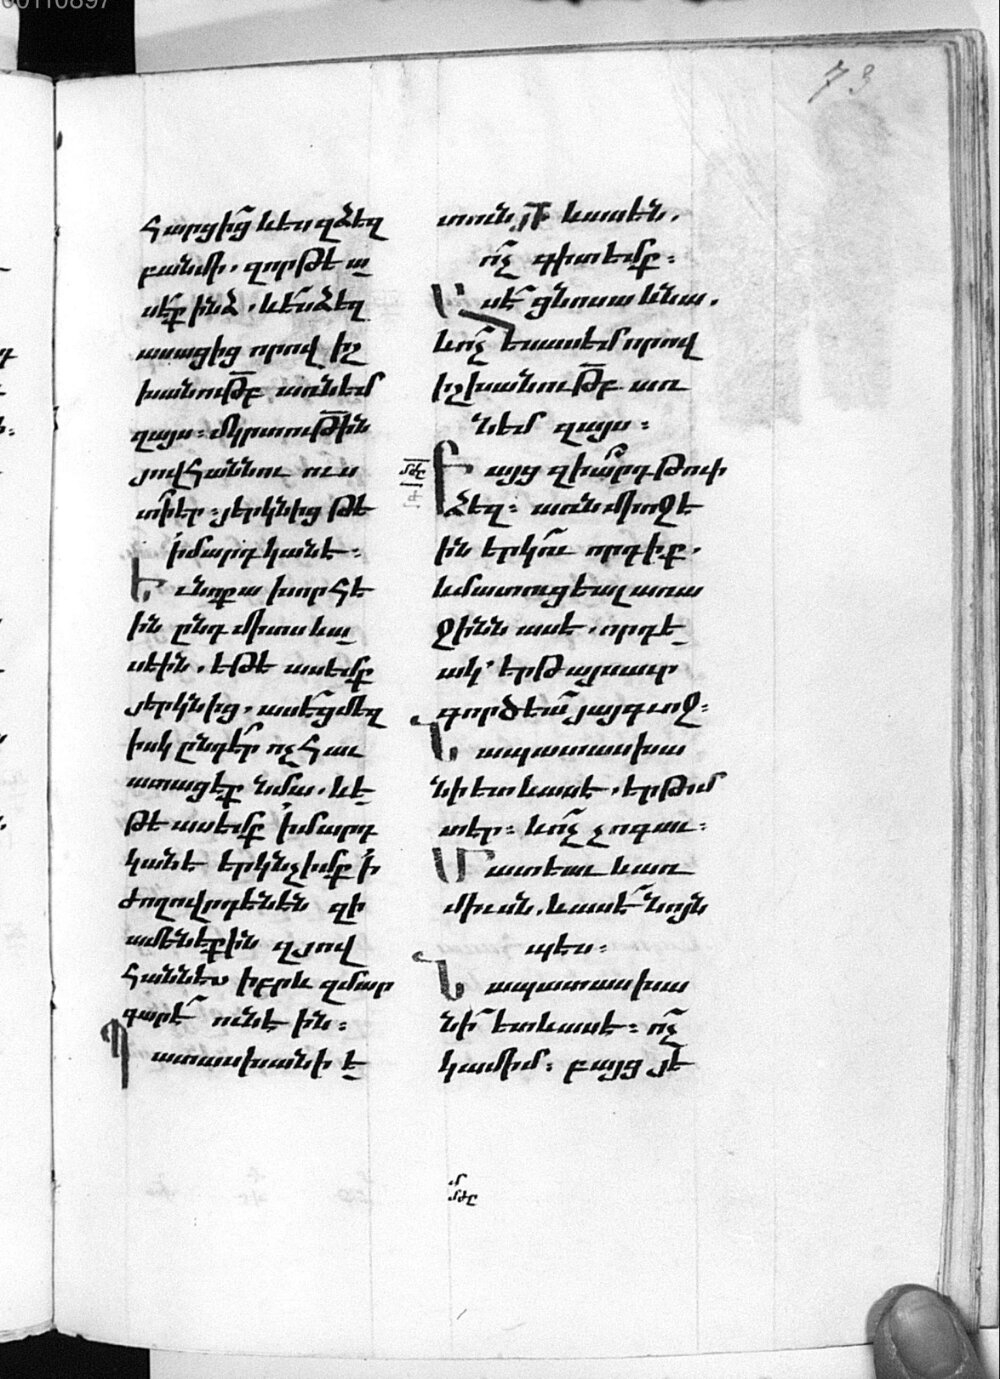 73
հարցից և ես զձեզ
բանմի. զոր թէ ա
սէք ինձ. և ես ձեզ
ասացից որով իշ
խանութբ առնեմ
զայս։ մկրտութին
յովհաննու ուս
տի էր։ յերկնից թէ
ի մարդկանէ։
Եւ նոքա խորհէ
ին ընդ միտս և ա
սեին. եթէ ասեմք
յերկնից. ասէ ցմեզ
իսկ ընդէր ոչ հաւ
ատացէք նմա. և ե
թէ ասեմք ի մարդ
կանէ երկնչիմք ի
ժողովրդենէն զի
ամենեքին զյով
հաննէս իբրև զմար
գարէ ունէին։
Պատասխանի ե
տուն յի և ասեն.
ոչ գիտեմք։
Ասէ ցնոսա և նա.
և ոչ ես ասեմ որով
իշխանութբ առ
նեմ զայս։
Բայց զիարդ թուի
ձեզ։ առն միոջէ
ին երկու որդիք.
և մատուցեալ առ ա
ջինն ասէ. որդե
ակ՝ երթ այսաւր
գործեա յայգւոջ։
Նա պատասխա
նի ետ և ասէ. երթամ
տէր։ և ոչ չոգաւ։
Մատեաւ և առ
միւսն. և ասէ նոյն
պէս։
Նա պատասխա
նի ետ և ասէ։ ոչ
կամիմ։ բայց յե
մժը